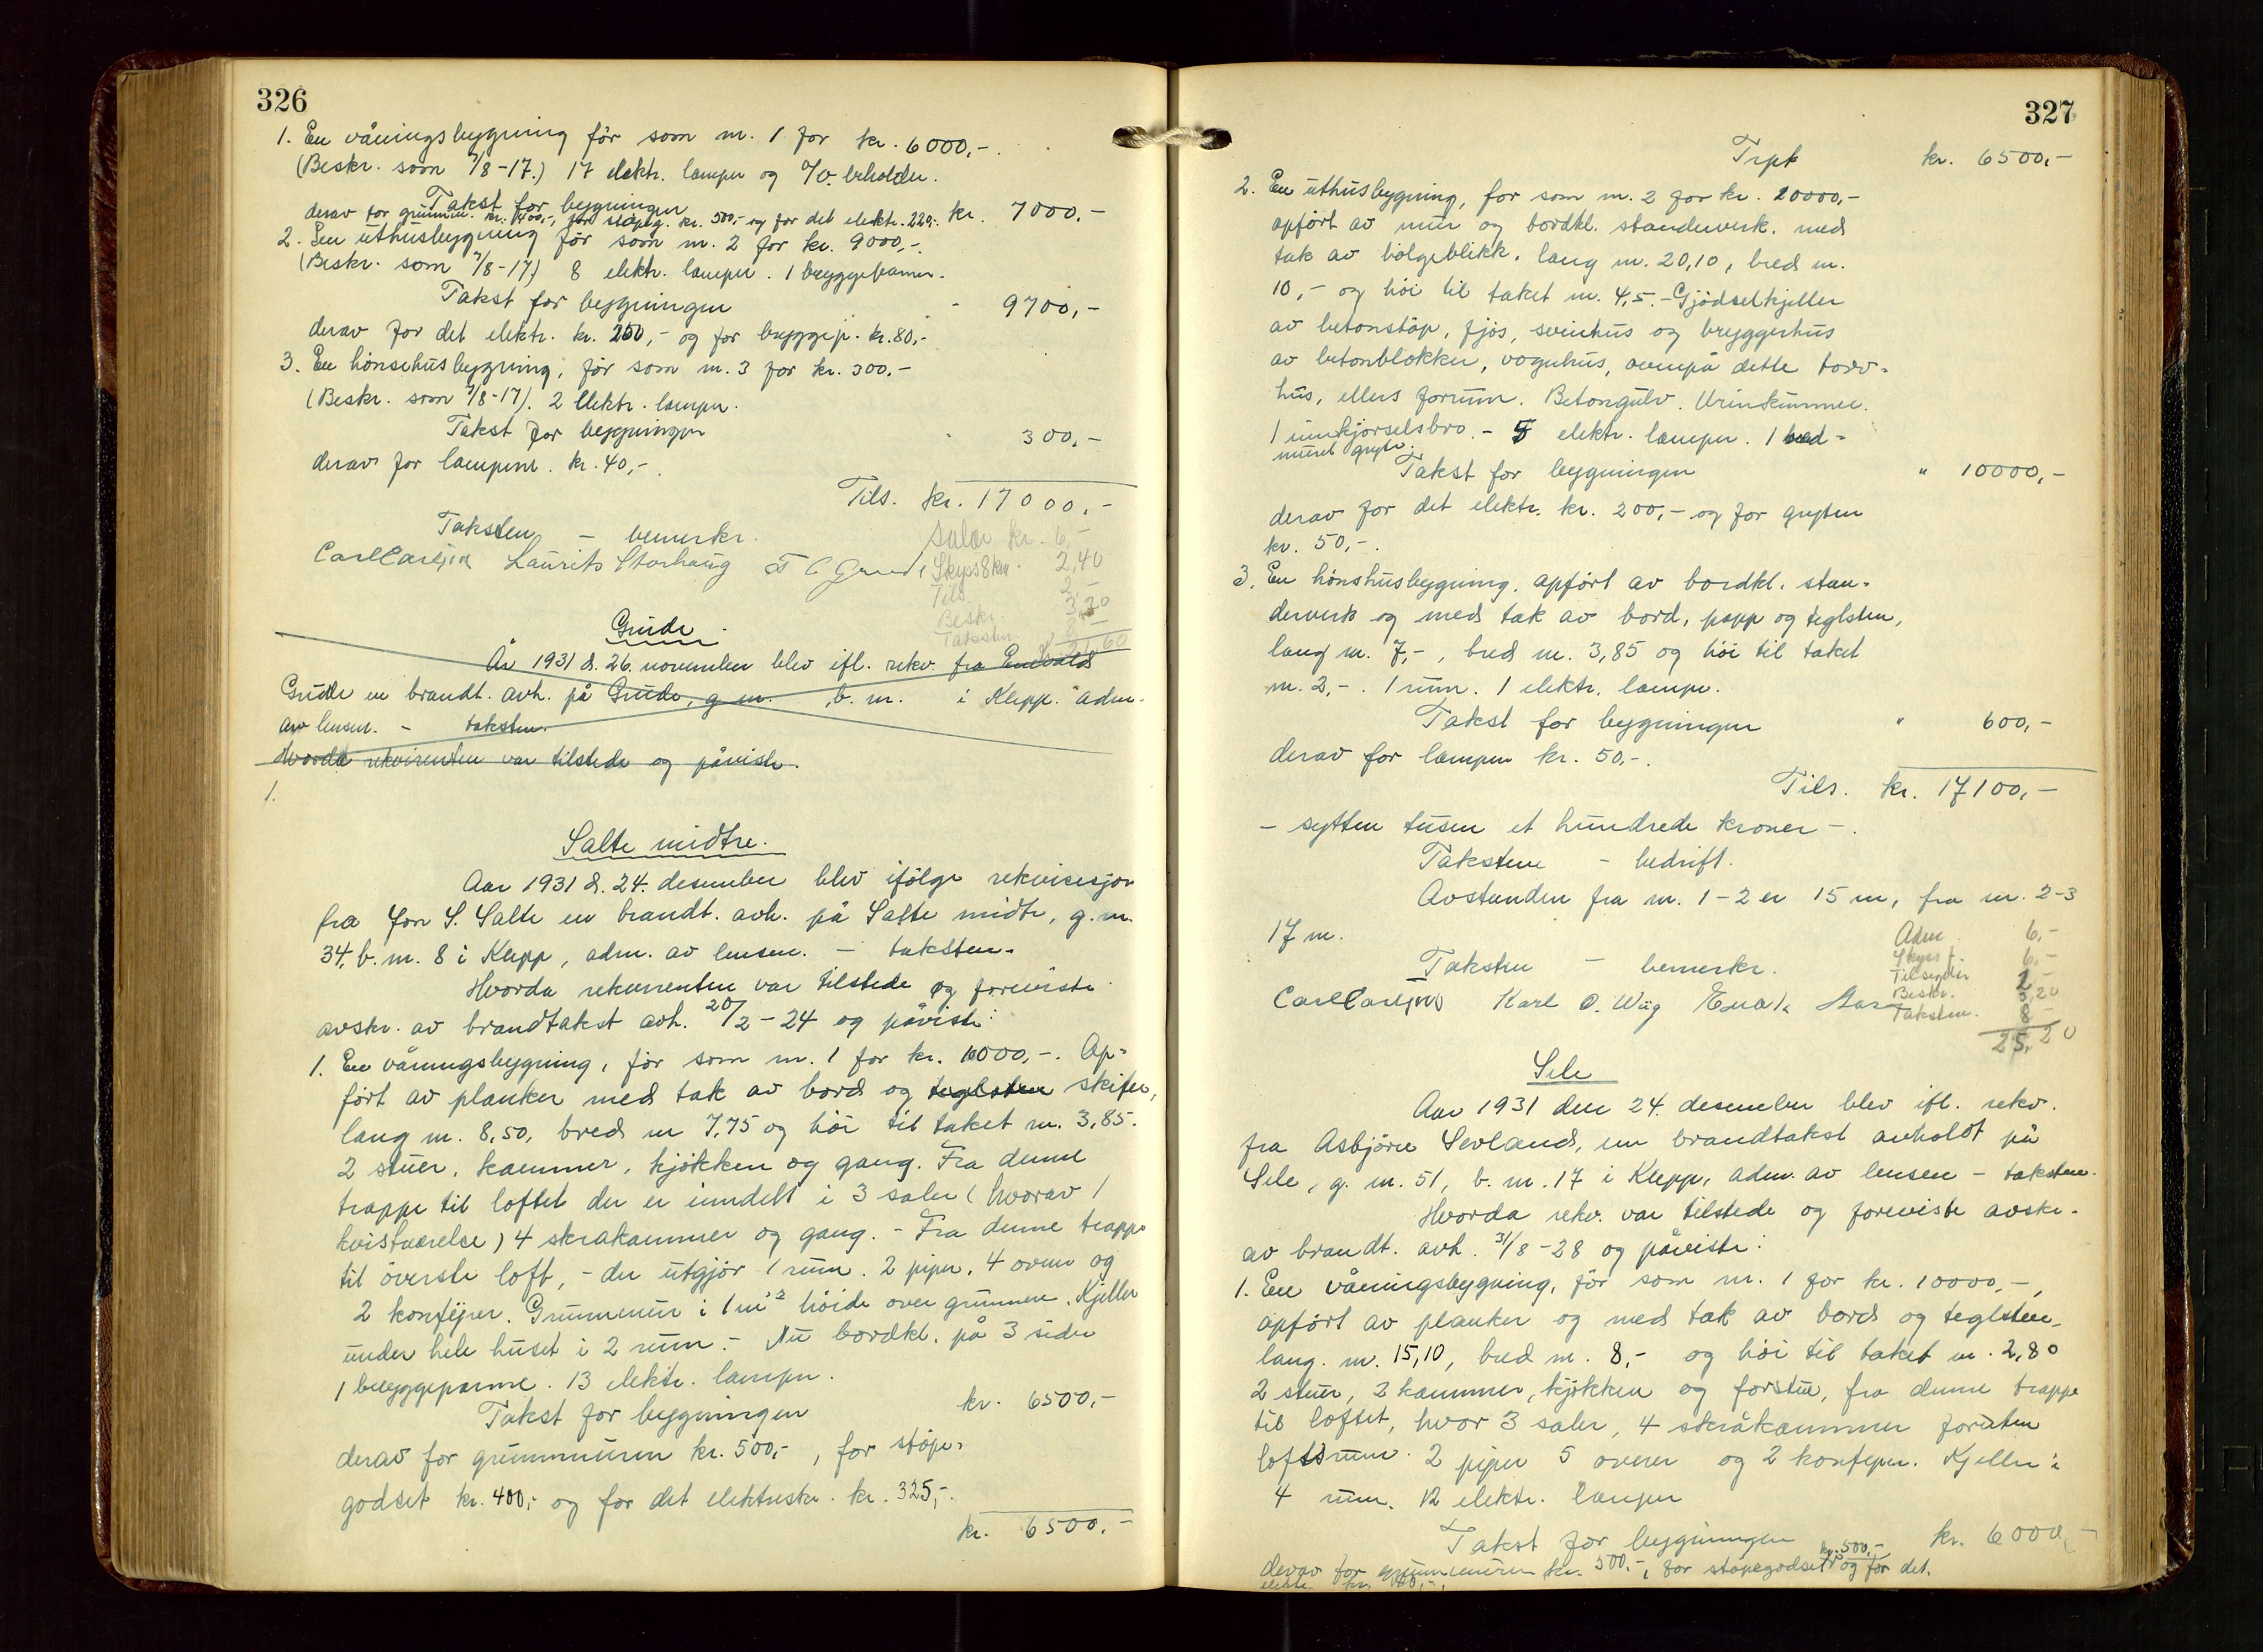 326
1. En våningsbygning för som nr. 1 for kr. 6000,-.
(Beskr. som 7/8-17.) 17 elektr. lamper og beholder.
Takst for bygningen kr. 7000,-
derav for grunnm. kr. 400,-, for støpeg. kr. 500,- og for det elektr. 220,-
2. En uthusbygning för som nr. 2 for kr. 9000,-.
(Beskr. som 7/8-17) 8 elektr. lamper. 1 bryggepanne.
Takst for bygningen - 9700,-
derav for det elektr. kr. 250,- og for bryggep. kr. 80,-
3. En hönsehusbygning, för som nr. 3 for kr. 300,-
(Beskr. som 7/8-17). 2 Elektr. lamper.
Takst for bygningen - 300,-
derav for lampene. kr. 40,-.
Tils. kr. 17000,-
Taksten - bemerkr.
Salær kr. 6,-
Carl Carlsen Laurits Storhaug T C Grude
Skyss 8 km. 2,40
Tils. 2,-
Beskr. 3,20
Taksten.
Grude.
År 1931 d. 26. november blev ifl. rekv. fra Enevald
Grude en brandt. avh. på Grude, g. nr. , b. nr. i Klepp. adm.
av lensm. - taksten.
Hvorda rekvirenten var tilstede og påviste.
1.
Salte midtre.
Aar 1931 d. 24. desember blev ifölge rekvisisjon
fra Jon S. Salte en brandt. avh. på Salte midtr, g. nr.
34, b. nr. 8 i Klepp, adm. av lensm. - taksten.
Hvorda rekvirenten var tilstede og foreviste
avskr. av brandtakst avh. 20/2-24 og påviste:
1. En våningsbygning, för som nr. 1 for kr. 10000,-. Op-
fört av planker med tak av bord og teglsten skifer,
lang m. 8,50, bred m 7,75 og höi til taket m. 3,85.
2 stuer, kammer, kjökken og gang. Fra denne
trappe til loftet der er inndelt i 3 saler (hvorav 1
kvistværelse) 4 skråkammer og gang. - Fra denne trappe
til överste loft, - der utgjör 1 rum. 2 piper, 4 ovner og
2 komfyrer. Grunnmur i 1 m's höide over grunnen. Kjeller
under hele huset i 2 rum. - Nu bordkl. på 3 sider
1 bryggepanne. 13 elektr. lamper.
Takst for bygningen kr. 6500,-
derav for grunnmuren kr. 500,-, for stöpe-
godset kr. 400,- og for det elektriske. kr. 325,-.
kr. 6500,-
327
Trpt kr. 6500,-
2. En uthusbygning, for som nr. 2 for kr. 20000,-
opfört av mur og bordkl. standerverk. med
tak av bölgeblikk. lang m. 20,10, bred m.
10,- og höi til taket m. 4,5. - Gjödselkjeller
av betonstöp, fjös, svinhus og bryggerhus
av betonblokker, vognhus, ovenpå dette torv-
hus, ellers forrum. Betongulv. Urinkummer.
1 innkjörselsbro. - 5 elektr. lamper. 1 ned-
muret gryte.
Takst for bygningen " 10000,-
derav for det elektr. kr. 200,- og for gryten
kr. 50,-.
3. En hönshusbygning. opfört av bordkl. stan-
derverk og med tak av bord, papp og teglsten,
lang m. 7,-, bred m. 3,85 og höi til taket
m. 2,-. 1 rum. 1 elektr. lampe.
Takst for bygningen " 600,-
derav for lampen kr. 50,-.
Tils. kr. 17100,-
- sytten tusen et hundrede kroner -.
Takstene - bedrift.
Avstanden fra nr. 1-2 er 15 m, fra nr. 2-3
17 m.
Adm. 6,-
Taksten - bemerkr.
Skyss f. 6,-
Tilsigelse 2,-
Beskr. 3,20
Carl Carlsen Karl O. Wiig
Taksten. 8,-
25,20
Sele
Aar 1931 den 24. desember blev ifl. rekv.
fra Asbjörn Sevland, en brandtakst avholdt på
Sele, g. nr. 51, b. nr. 17 i Klepp, adm. av lensm - taksten.
Hvorda rekv. var tilstede og foreviste avskr.
av brandt. avh. 31/8-28 og påviste:
1. En våningsbygning, för som nr. 1 for kr. 10000,-,
opfört av planker og med tak av bord og teglsten,
lang. m. 15,10, bred m. 8,- og höi til taket m. 2,80
2 stuer, 2 kammer, kjökken og forstue, fra denne trappe
til loftet, hvor 3 saler, 4 skråkammer foruten
loftsrum. 2 piper 5 ovner og 2 komfyrer. Kjeller i
4 rum. 12 elektr. lamper
Takst for bygningen kr. 6000,-
derav for grunnmuren kr. 500,-, for stöpegodset kr. 500,- og for det.
elektr. kr.